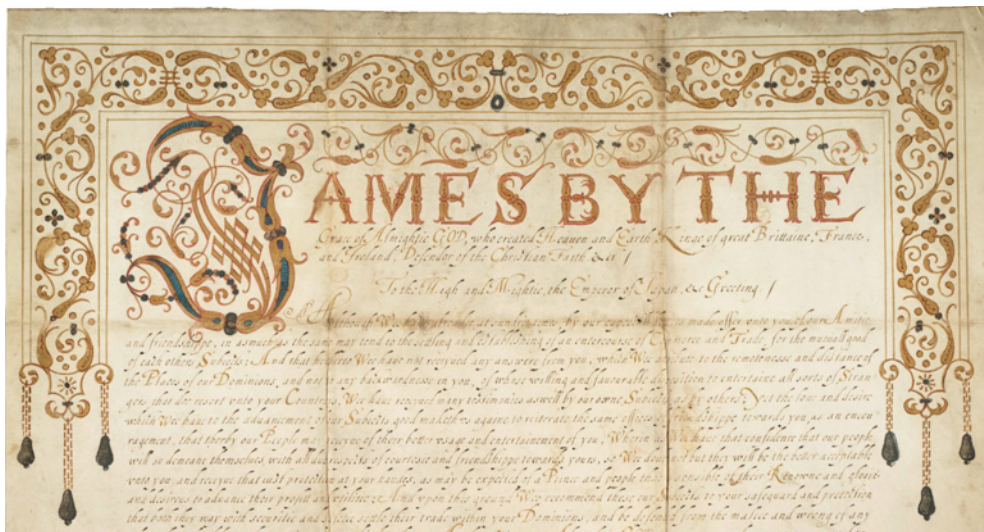 JAMES BY THE
Grace of Almightie GOD, who created Heaven and Earth Kinge of great Brittaine, France,
and Ireland, Defender of the Christian Faith &c /
To the High and Mightie, the Emperor of Japan, &c Greeting. /
Although We haue at sundrie times by our expresse made offer vnto you of our Amitie
and friendshippe, in asmuch as the same may tend to the setling and establishing of an entercourse of Commerce and Trade, for the mutuall good
of each others Subiects: And that hitherto We haue not receyued any answere from you, which We to the remotenesse and distance of
the Places of our Dominions, and not to any backwardnesse in you, of whose willing and fauorable disposition to entertaine all sorts of Stran-
gers that doe resort vnto your Countries, We haue receyued many testimonies aswell by our owne Subiects as by others; Yet the loue and desire
which We haue to the aduancement of our Subiects good maketh vs againe to reiterate the same offices of friendshippe towards you, as an encou
ragement, that therby our People may receyue of their better vsage and entertainement of you, Wherin as We haue that confidence that our people
will so demeane themselues, with all due respects of courtesie and friendshippe towards yours, so We doubt not but they will be the better acceptable
vnto you, and receyue that iust protection at your handes, as may be expected of a Prince and people that sensible of their Renowne and glorie
and desirous to aduance their proffit and vtilitie: And vpon this ground We recommend these our Subiects to your safeguard and protection
that both they may with securitie and settle their trade within your Dominions, and be defended from the malice and wrong of any